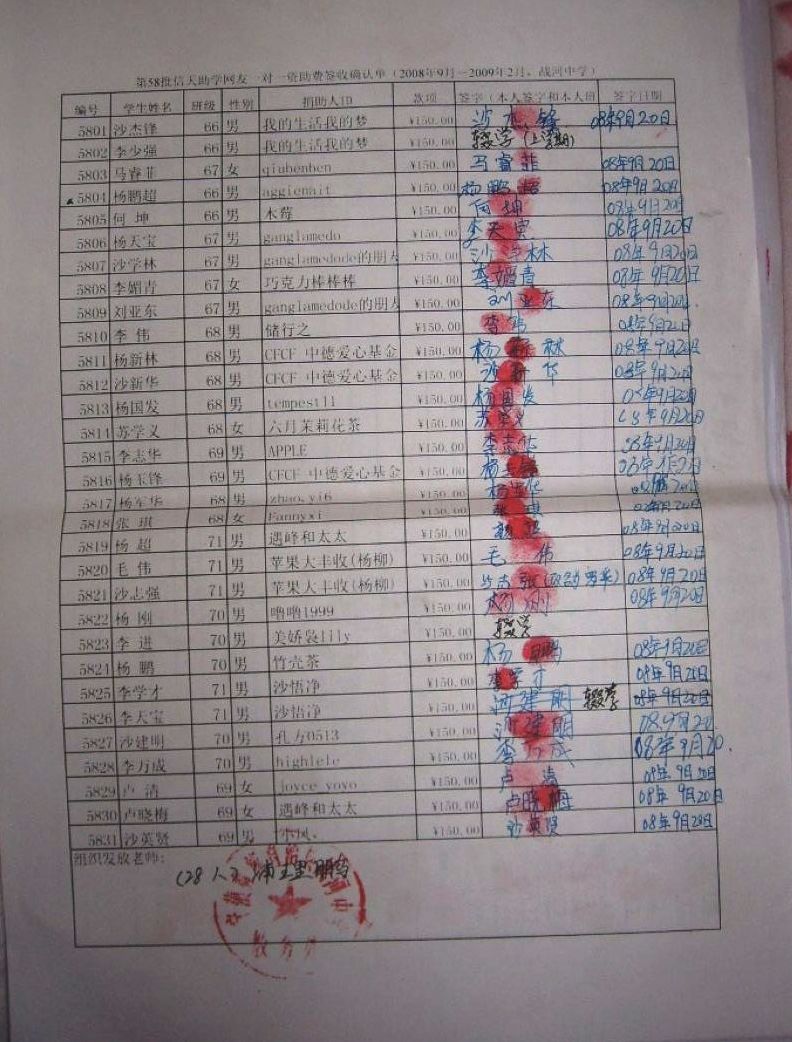 第58批信天助学网友一对一资助费签收确认单（2008年9月－2009年2月，战河中学）
编号 学生姓名 班级 性别 捐助人ID 款项 签字（本人签字和本人 签字日期
5801 沙杰锋 66 男 我的生活我的梦 ¥150.00 沙杰锋 08年9月20日
5802 李少强 66 男 我的生活我的梦 ¥150.00 辍学（上学期）
5803 马睿菲 67 女 qiubenben ¥150.00 马睿菲 08年9月20日
5804 杨鹏超 66 男 aggienait ¥150.00 杨鹏超 08年9月20日
5805 何坤 66 男 木莓 ¥150.00 何坤 08年9月20日
5806 杨天宝 67 男 ganglamedo ¥150.00 李天宝 08年9月20日
5807 沙学林 67 男 ganglamedode的朋友 ¥150.00 沙学林 08年9月20日
5808 李媚青 67 女 巧克力棒棒棒 ¥150.00 李媚青 08年9月20日
5809 刘亚东 67 男 ganglamedode的朋友 ¥150.00 刘亚东 08年9月20日
5810 李伟 68 男 储行之 ¥150.00 李伟 08年9月20日
5811 杨新林 68 男 CFCF 中德爱心基金 ¥150.00 杨新林 08年9月20日
5812 沙新华 68 男 CFCF 中德爱心基金 ¥150.00 沙新华 08年9月20日
5813 杨国发 68 男 tempest11 ¥150.00 杨国发 08年9月20日
5814 苏学义 68 女 六月茉莉花茶 ¥150.00 苏学义 08年9月20日
5815 李志华 69 男 APPLE ¥150.00 李志华 08年9月20日
5816 杨玉锋 69 男 CFCF 中德爱心基金 ¥150.00 杨
5817 杨军华 68 男 zhao.yi6 ¥150.00 杨军华
5818 张琪 68 女 Fannyxi ¥150.00 张琪
5819 杨超 71 男 遇峰和太太 ¥150.00 杨超 08年9月20日
5820 毛伟 71 男 苹果大丰收(杨柳) ¥150.00 毛伟 08年9月20日
5821 沙志强 71 男 苹果大丰收(杨柳) ¥150.00 08年9月20日
5822 杨刚 70 男 噜噜1999 ¥150.00 杨刚 08年9月20日
5823 李进 70 男 美娇袅lily ¥150.00 辍学
5824 杨鹏 70 男 竹壳茶 ¥150.00 杨鹏 08年9月20日
5825 李学才 71 男 沙悟净 ¥150.00 李学才 08年9月20日
5826 李天宝 71 男 沙悟净 ¥150.00 沙建明 辍学 08年9月20日
5827 沙建明 70 男 孔方0513 ¥150.00 沙建明 08年9月20
5828 李万成 70 男 highlele ¥150.00 李万成 08年9月20
5829 卢清 69 女 joyce_yoyo ¥150.00 卢清 08年9月20日
5830 卢晓梅 69 女 遇峰和太太 ¥150.00 卢晓梅 08年9月20日
5831 沙英贤 69 男 小风、 ¥150.00 沙英贤 08年9月20日
组织发放老师：
(28人)
教务处